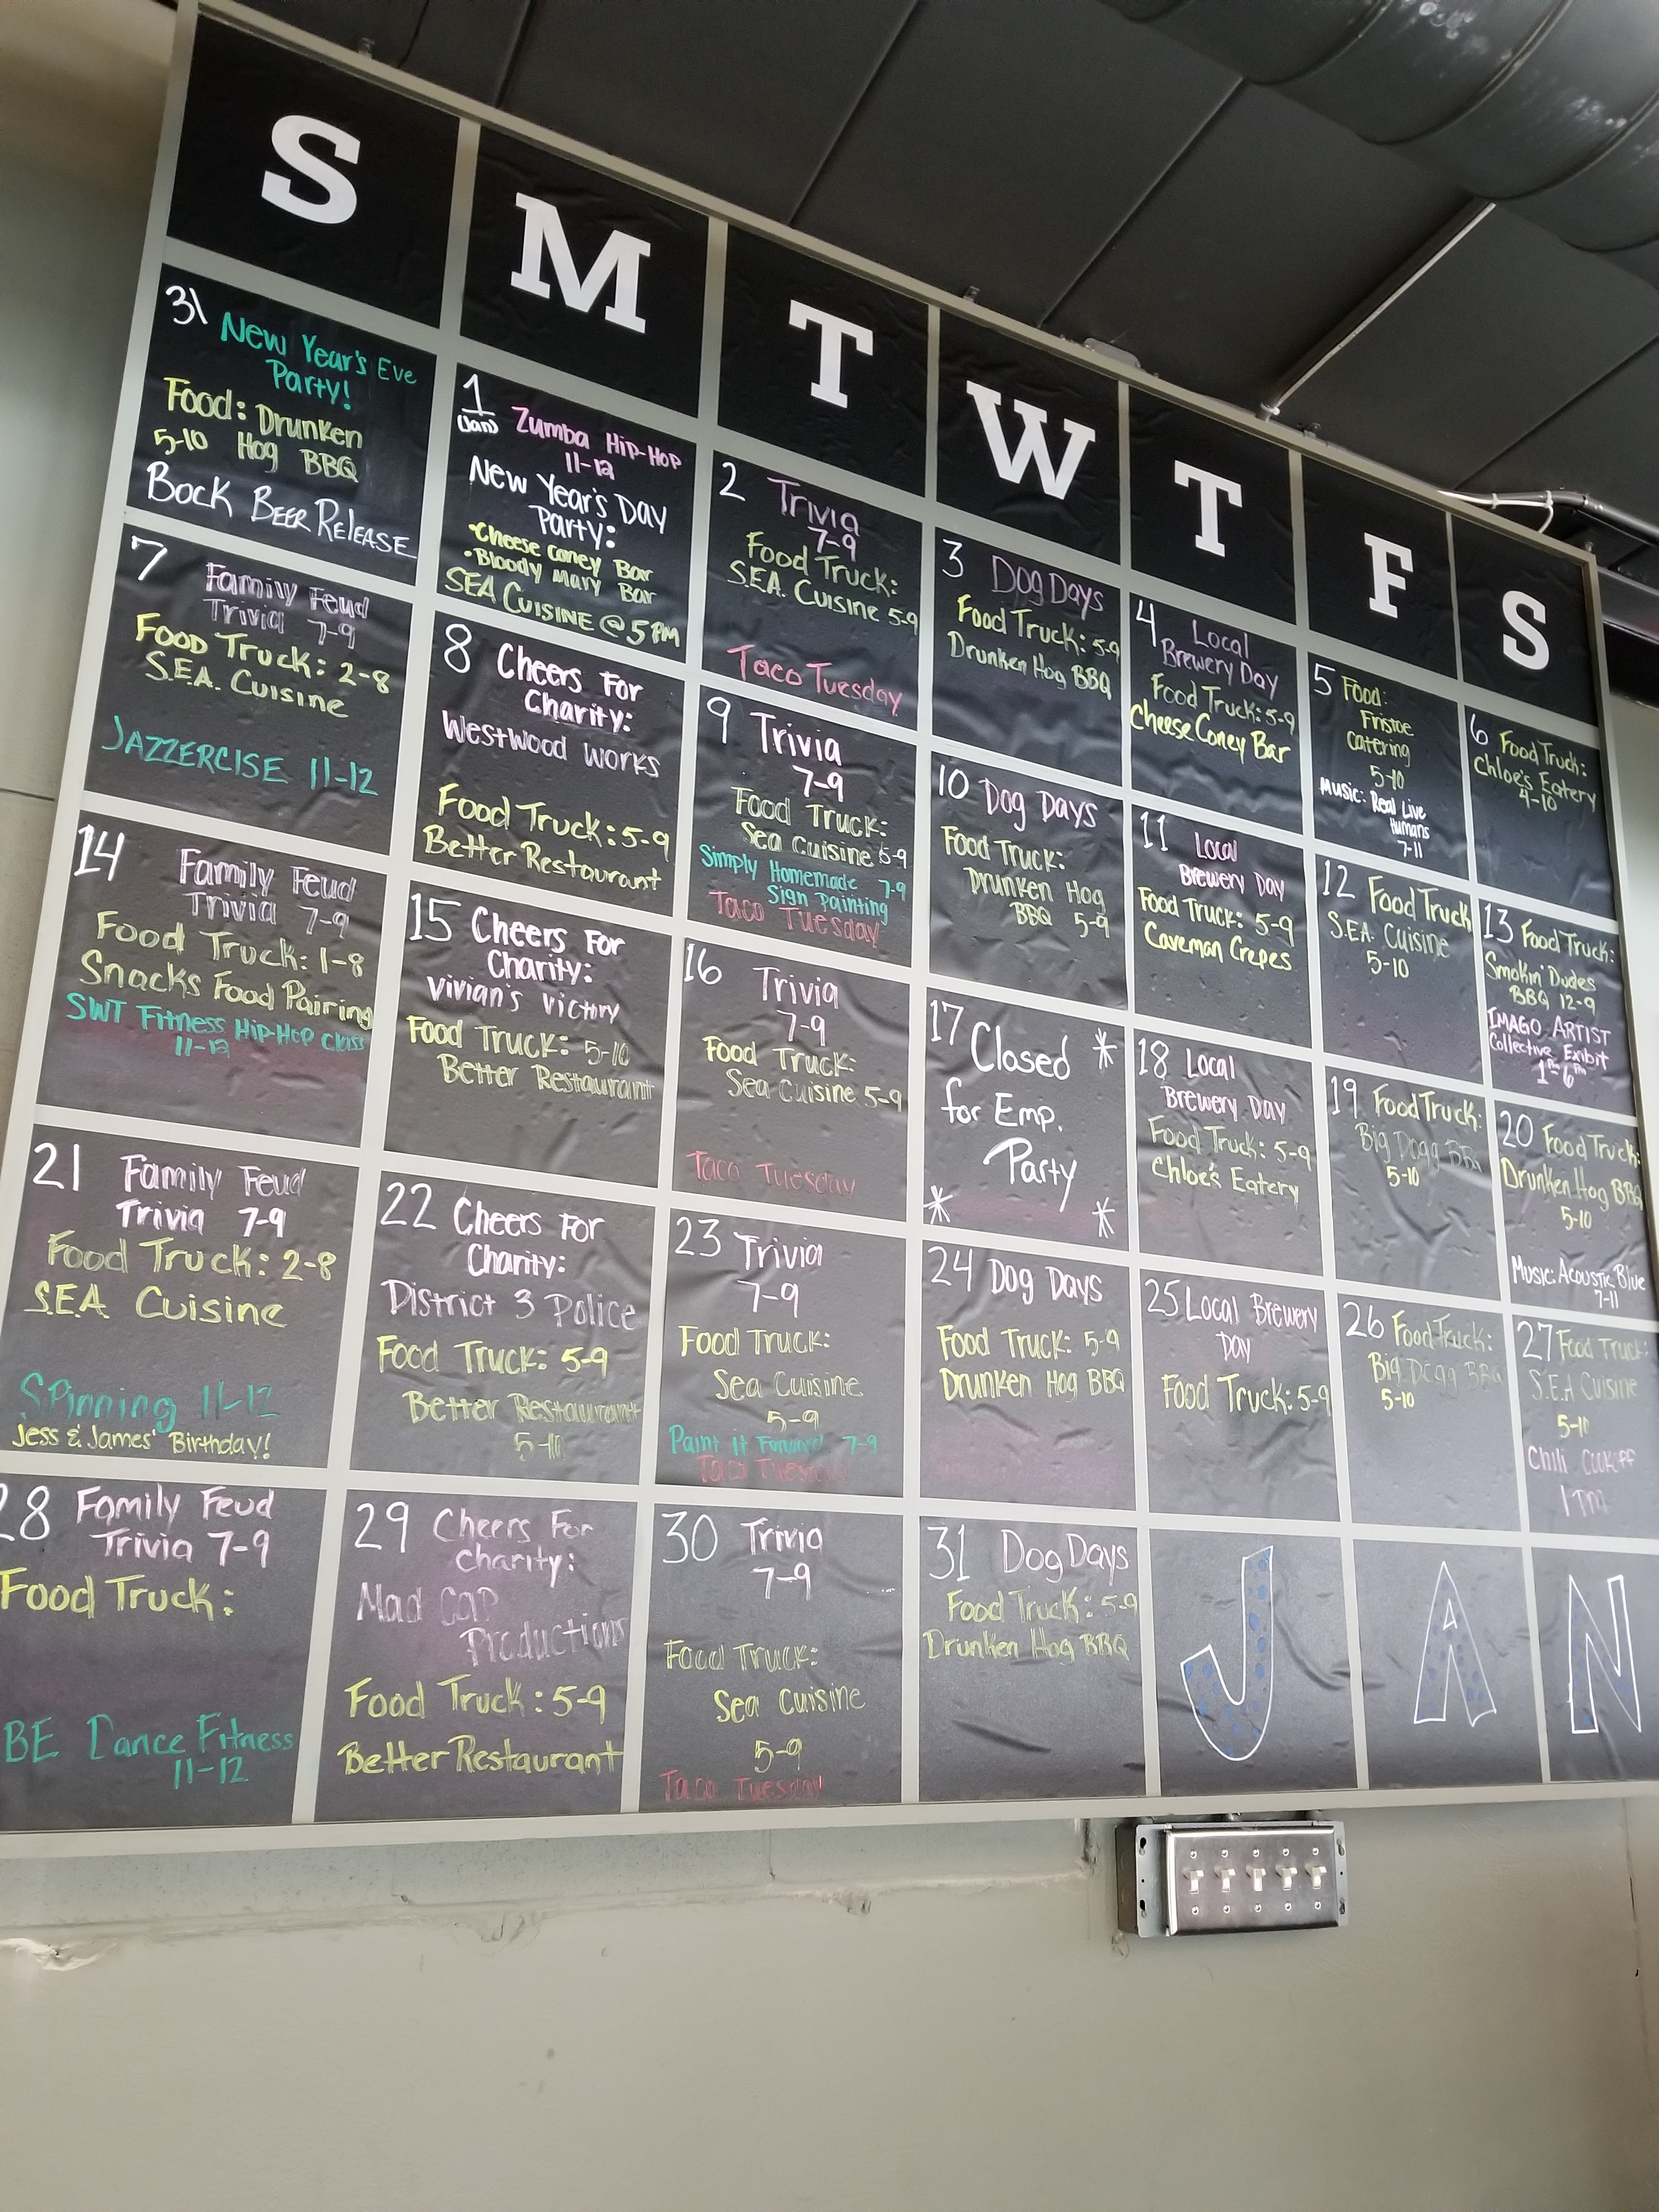 S
M
T
W
T
F
S
31 New Year's Eve
Party!
Food: Drunken
5-10 Hog BBQ
Bock Beer Release
1 Zumba Hip-Hop
(Jan) 11-12
New Year's Day
Party:
•Cheese Coney Bar
•Bloody Mary Bar
SEA Cuisine @ 5 PM
2 Trivia
7-9
Food Truck:
S.E.A. Cuisine 5-9
Taco Tuesday
3 Dog Days
Food Truck: 5-9
Drunken Hog BBQ
4 Local
Brewery Day
Food Truck: 5-9
Cheese Coney Bar
5 Food:
Fristoe
Catering
5-10
Music: Real Live
Humans
7-11
6 Food Truck:
Chloe's Eatery
4-10
7 Family Feud
Trivia 7-9
Food Truck: 2-8
S.E.A. Cuisine
Jazzercise 11-12
8 Cheers For
Charity:
Westwood Works
Food Truck: 5-9
Better Restaurant
9 Trivia
7-9
Food Truck:
Sea Cuisine 5-9
Simply Homemade 7-9
Sign Painting
Taco Tuesday
10 Dog Days
Food Truck:
Drunken Hog
BBQ 5-9
11 Local
Brewery Day
Food Truck: 5-9
Caveman Crepes
12 Food Truck
S.E.A. Cuisine
5-10
13 Food Truck:
Smokin' Dudes
BBQ 12-9
IMAGO ARTIST
Collective Exibit
1PM 6PM
14 Family Feud
Trivia 7-9
Food Truck: 1-8
Snacks Food Pairing
SWT Fitness Hip-Hop Class
11-12
15 Cheers For
Charity:
Vivian's Victory
Food Truck: 5-10
Better Restaurant
16 Trivia
7-9
Food Truck:
Sea Cuisine 5-9
Taco Tuesday
17 Closed *
for Emp.
Party
* *
18 Local
Brewery Day
Food Truck: 5-9
Chloe's Eatery
19 Food Truck:
Big Dogg BBQ
5-10
20 Food Truck:
Drunken Hog BBQ
5-10
Music: Acoustic Blue
7-11
21 Family Feud
Trivia 7-9
Food Truck: 2-8
S.E.A Cuisine
Spinning 11-12
Jess & James' Birthday!
22 Cheers For
Charity:
District 3 Police
Food Truck: 5-9
Better Restaurant
5-10
23 Trivia
7-9
Food Truck:
Sea Cuisine
5-9
Paint it Forward 7-9
Taco Tuesday
24 Dog Days
Food Truck: 5-9
Drunken Hog BBQ
25 Local Brewery
Day
Food Truck: 5-9
26 Food Truck:
Big Dogg BBQ
5-10
27 Food Truck:
S.E.A Cuisine
5-10
Chili Cookoff
1 PM
28 Family Feud
Trivia 7-9
Food Truck:
BE Dance Fitness
11-12
29 Cheers For
Charity:
Mad Cap
Productions
Food Truck: 5-9
Better Restaurant
30 Trivia
7-9
Food Truck:
Sea Cuisine
5-9
Taco Tuesday
31 Dog Days
Food Truck: 5-9
Drunken Hog BBQ
J
A
N